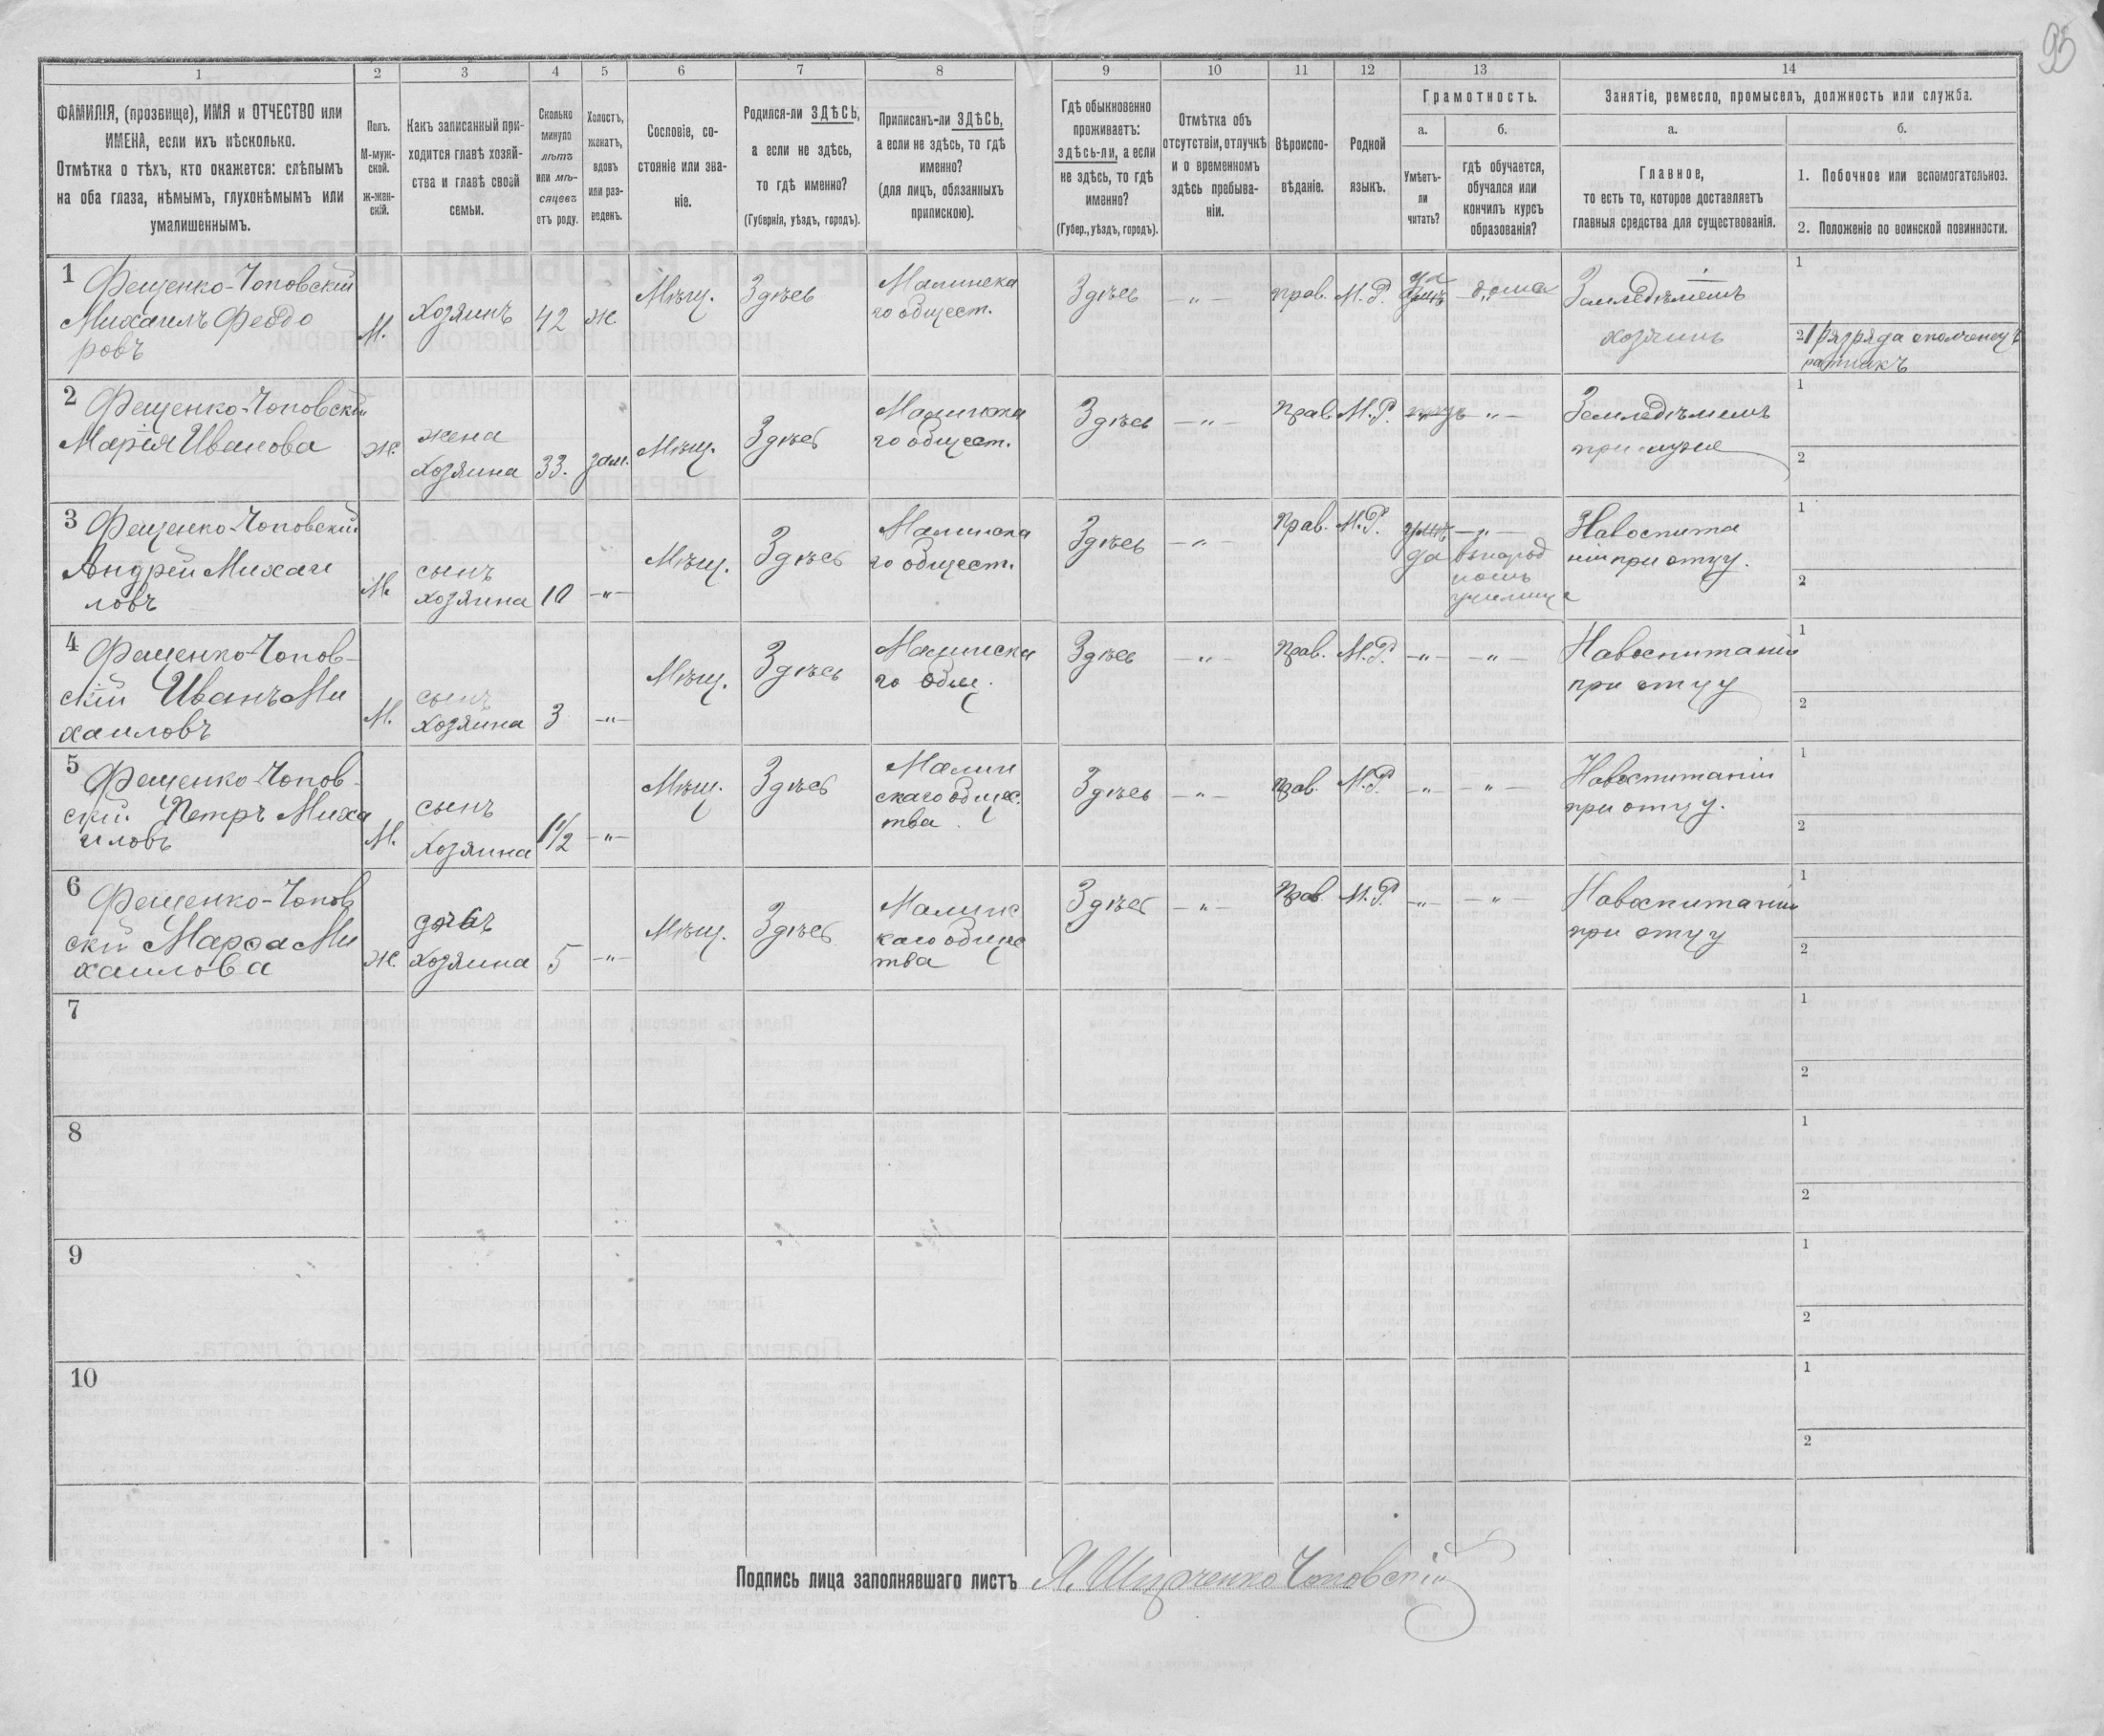 93
1 2 3 4 5 6 7 8 9 10 11 12 13 14
ФАМИЛІЯ, (прозвище), ИМЯ и ОТЧЕСТВО или
ИМЕНА, если ихъ нѣсколько.
Отмѣтка о тѣхъ, кто окажется: слѣпымъ
на оба глаза, нѣмымъ, глухонѣмымъ или
умалишеннымъ.
Полъ.
М-муж-
ской.
ж-жен-
скій.
Какъ записанный при-
ходится главѣ хозяй-
ства и главѣ своей
семьи.
Сколько
минуло
лѣтъ
или мѣ-
сяцевъ
отъ роду.
Холостъ,
женатъ,
вдовъ
или раз-
веденъ.
Сословіе, со-
стояніе или зва-
ніе.
Родился-ли ЗДѢСЬ,
а если не здѣсь,
то гдѣ именно?
(Губернія, уѣздъ, городъ).
Приписанъ-ли ЗДѢСЬ,
а если не здѣсь, то гдѣ
именно?
(для лицъ, обязанныхъ
припискою).
Гдѣ обыкновенно
проживаетъ:
здѣсь-ли, а если
не здѣсь, то гдѣ
именно?
(Губер., уѣздъ, городъ).
Отмѣтка объ
отсутствіи, отлучкѣ
и о временномъ
здѣсь пребыва-
ніи.
Вѣроиспо-
вѣданіе.
Родной
языкъ.
Грамотность.
а.
Умѣетъ-
ли
читать?
б.
гдѣ обучается,
обучался или
кончилъ курсъ
образованія?
Занятіе, ремесло, промыселъ, должность или служба.
а.
Главное,
то есть то, которое доставляетъ
главныя средства для существованія.
б.
1. Побочное или вспомогательное.
2. Положеніе по воинской повинности.
1 Фещенко-Чоповскій
Михаилъ Феодо
ровъ
М.
Хозяинъ
42
ж.
Мѣщ.
Здѣсь
Малинска
го общест.
Здѣсь
—„—
прав.
М.Р.
да
дома
Земледѣлецъ
хозяинъ
1
2 1 разряда ополченецъ
ратникъ
2 Фещенко-Чоповскій
Марія Иванова
ж.
жена
Хозяина
33.
зам.
Мѣщ.
Здѣсь
Малинска
го общест.
Здѣсь
—„—
Прав.
М.Р.
—„—
Земледѣлецъ
при мужѣ
1
2
3 Фещенко-Чоповскій
Андрей Михаи
ловъ
М.
сынъ
хозяина
10
—„—
Мѣщ.
Здѣсь
Малинска
го общест.
Здѣсь
—„—
Прав.
М.Р.
—„—
да
въ народ
номъ
училище
На воспита
ніи при отцу.
1
2
4 Фещенко-Чопов-
скій Иванъ Ми
хаиловъ
М.
сынъ
Хозяина
3
—„—
Мѣщ.
Здѣсь
Малинска
го общ.
Здѣсь
—„—
Прав.
М.Р.
—„—
—„—
На воспитаніи
при отцу
1
2
5 Фещенко-Чопов-
скій Петръ Миха
иловъ
М.
сынъ
Хозяина
1 1/2
—„—
Мѣщ.
Здѣсь
Малин
скаго общес.
тва
Здѣсь
—„—
прав.
М.Р.
—„—
—„—
На воспитаніи
при отцу.
1
2
6 Фещенко-Чопов
скій Марфа Ми
хаилова
ж.
дочь
Хозяина
5
—„—
Мѣщ.
Здѣсь
Малинс
каго общес
тва
Здѣсь
—„—
Прав
М.Р
—„—
—„—
На воспитаніи
при отцу
1
2
7
1
2
8
1
2
9
1
2
10
1
2
Подпись лица заполнявшаго листъ Чоповскій